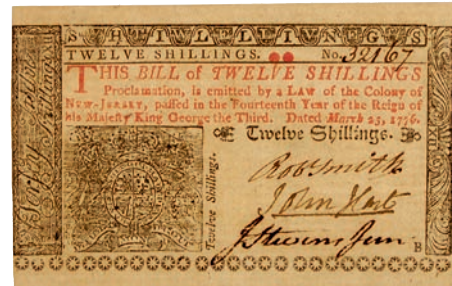 S H T I W L E L L I V N E G S
TWELVE SHILLINGS. No. 32167
THIS BILL of TWELVE SHILLINGS
Proclamation, is emitted by a LAW of the Colony of
NEW-JERSEY, passed in the Fourteenth Year of the Reign of
His Majesty King George the Third. Dated March 25, 1776.
Twelve Shillings.
Twelve Shillings.
Rob Smith
John Hart
J Stevens Jun
B